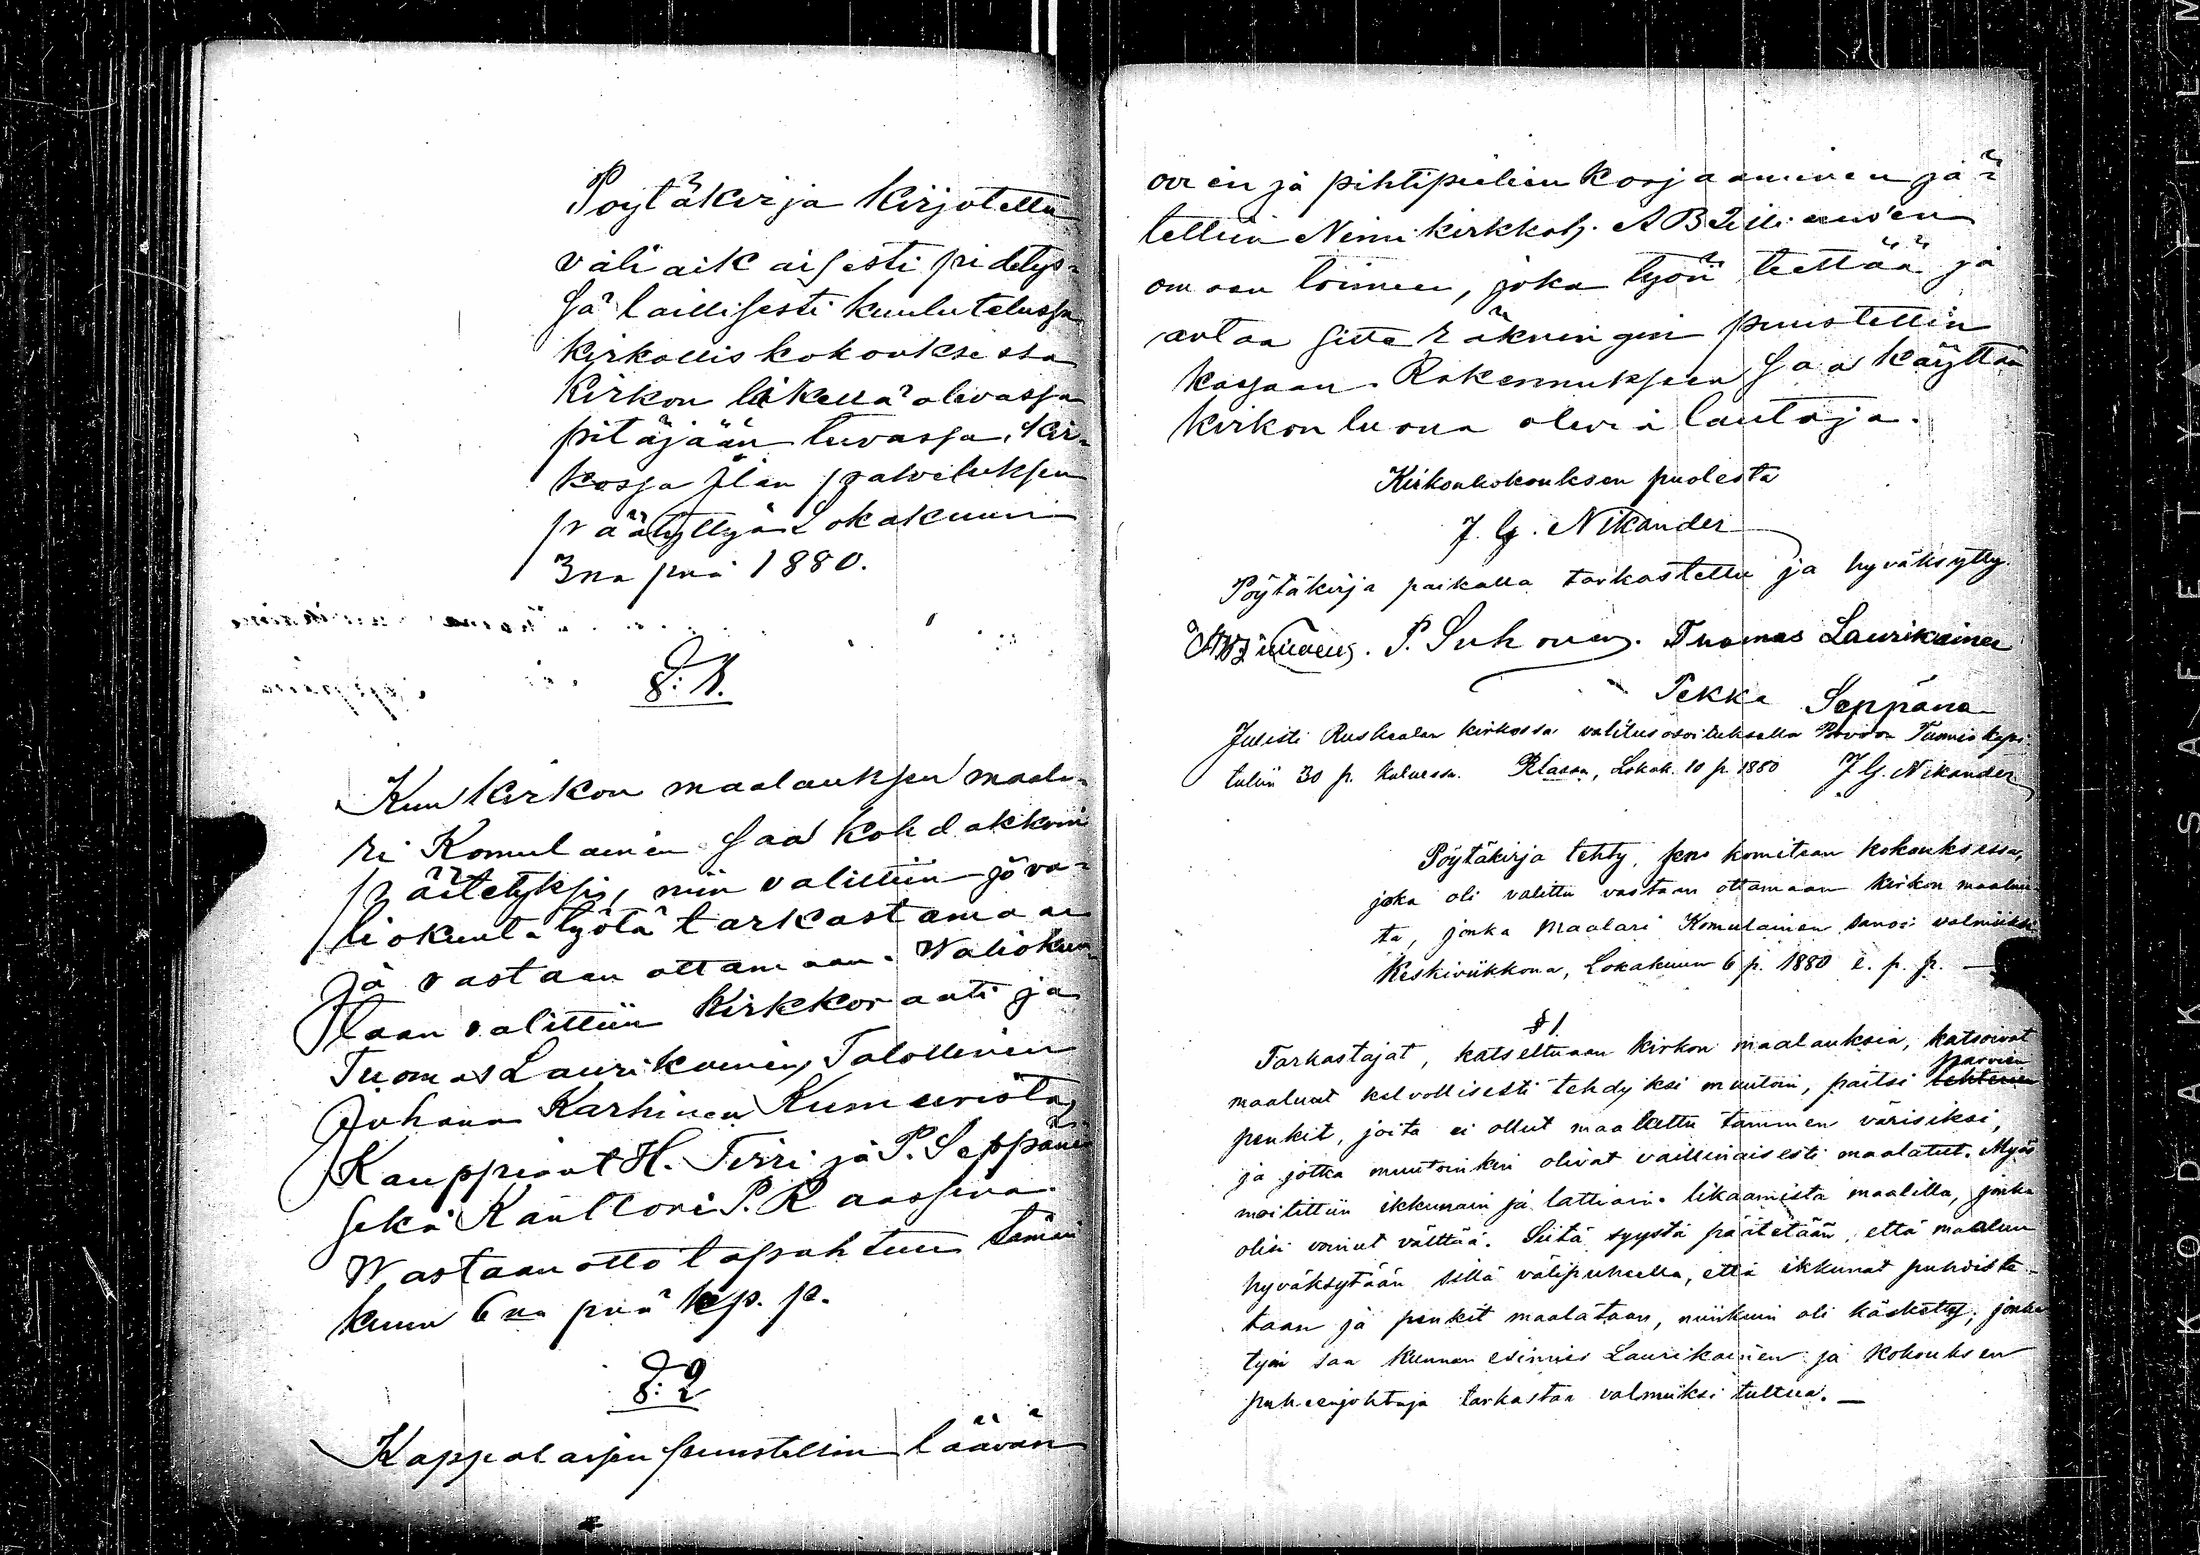 Pöytäkirja kirjotettu
väliaikaisesti pidetys-
sä laillisesti kuulutetussa
kirkollis kokouksessa
kirkon likellä olevassa
pitäjään tuvassa, kir-
kossa Jlan palveluksen
päätyttyä Lokakuun
3na pnä 1880.
§: 1.
Kun kirkon maalauksen maala-
ri Komulainen saa kohdakkoin
päätetyksi, niin valittiin jo va-
liokunta työtä tarkastamaan
ja vastaan ottamaan. Waliokun-
taan valittiin kirkkoraati ja
Tuomas Laurikainen, Talollinen
Juhana Karhinen Kumurista,
Kauppiaat H. Tirri ja P. Seppänen
sekä Kanttori P. Raassina.
Wastaanotto tapahtuu tämän
kuun 6na pnä kp. p.
§: 2
Kappalaisen puustellin läävän
ovein ja pihtipielien korjaaminen jä-
tettiin Nimikirkkoh.
omaan toimeen, joka työn teettää ja
antaa sitte räkningin puustellin
kassaan. Rakennukseen saa käyttää
kirkon luona olevia lautoja.
Kirkonkokouksen puolesta
J. G. Nikander
Pöytäkirja paikalla tarkastettu ja hyväksytty.
P. Suhonen. Tuomas Laurikainen
Pekka Seppäne
Julisti Ruskealan kirkossa valitusosoituksella Porvoon Tuomiokapi-
tuliin 30 p. kuluessa. Lokak. 10 p. 1880 J. G. Nikander
Pöytäkirja tehty sen komitean kokouksessa,
joka oli valittu vastaan ottamaan kirkon maalau-
ta, jonka Maalari Komulainen sanoi valmiiksi
Keskiviikkona, Lokakuun 6 p. 1880 e. p. p. —
§ 1.
Tarkastajat, katseltuaan kirkon maalauksia, katsoivat
maalaut kelvollisesti tehdyksi muutoin, paitsi parvien
penkit, joita ei ollut maalattu tammen värisiksi,
ja jotka muutoinkin olivat vaillinaisesti maalatut. Myös
moitittiin ikkunain ja lattiain likaamista maalilla, jonka
olisi voinut välttää. Siitä syystä päätetään, että maalaus
hyväksytään sillä välipuheella, että ikkunat puhdiste-
taan ja penkit maalataan, niinkuin oli käsketty; jonka
työn saa kunnan esimies Laurikainen ja kokouksen
puheenjohtaja tarkastaa valmiiksi tultua. —
KODAK SAFETY FILM